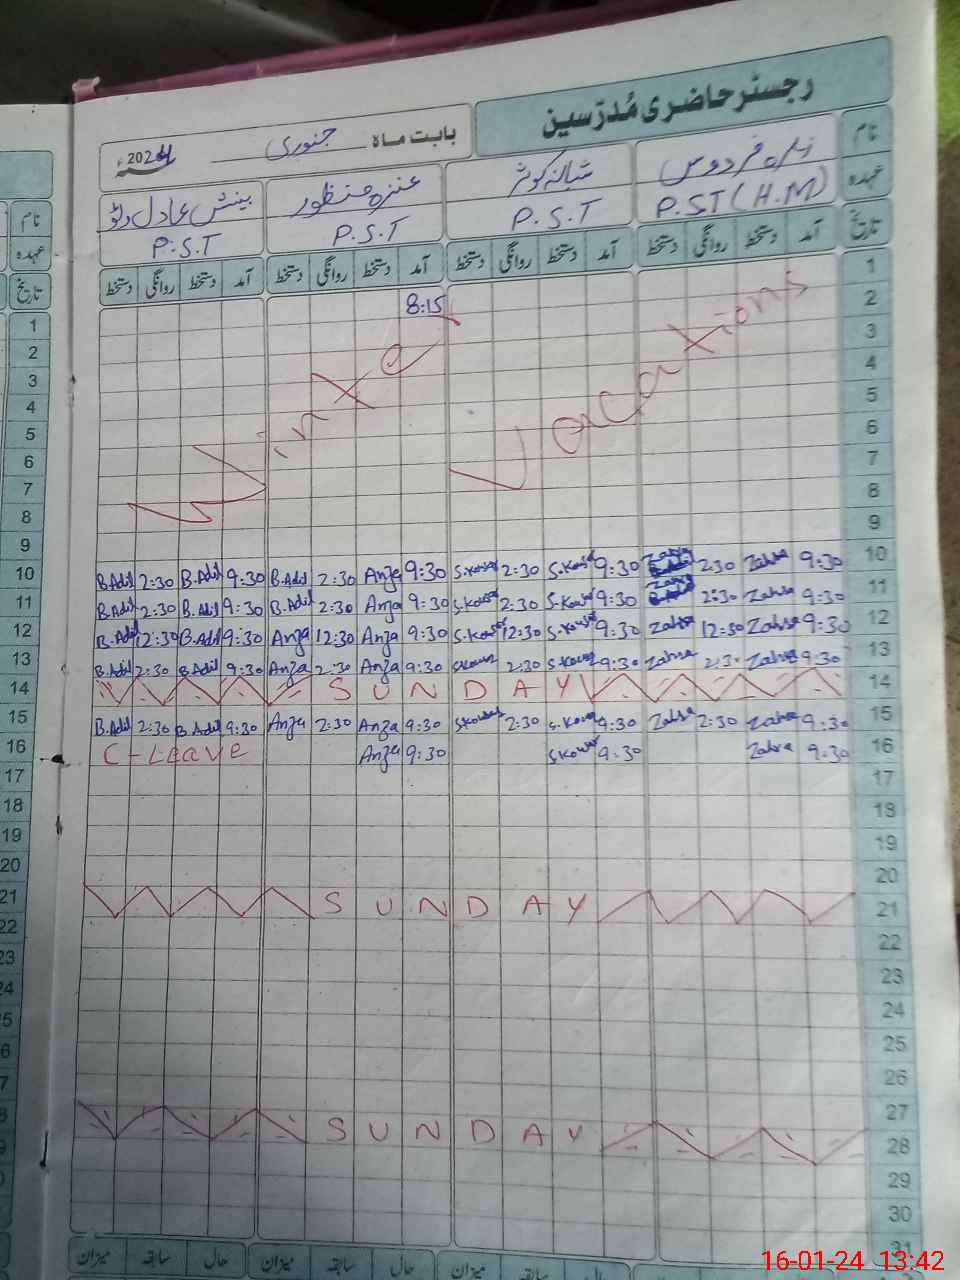 رجسٹر حاضری مُدرّسین
بابت ماہ جنوری 2024ء
نام زہرہ فردوس شبانہ کوثر عنزہ منظور بینش عادل
عہدہ P.S.T (H.M) P.S.T P.S.T P.S.T
تاریخ آمد دستخط روانگی دستخط آمد دستخط روانگی دستخط آمد دستخط روانگی دستخط آمد دستخط روانگی دستخط
نام
عہدہ
تاریخ
1
2 8:15
3
4
5
6
7
8
9
Winter Vacations
10 B.Adil 2:30 B.Adil 9:30 B.Adil 2:30 Anza 9:30 S.Kousar 2:30 S.Kousar 9:30 Zahra 2:30 Zahra 9:30 10
11 B.Adil 2:30 B.Adil 9:30 B.Adil 2:30 Anza 9:30 S.Kousar 2:30 S.Kousar 9:30 Zahra 2:30 Zahra 9:30 11
12 B.Adil 12:30 B.Adil 9:30 Anza 12:30 Anza 9:30 S.Kousar 12:30 S.Kousar 9:30 Zahra 12:30 Zahra 9:30 12
13 B.Adil 2:30 B.Adil 9:30 Anza 2:30 Anza 9:30 S.Kousar 2:30 S.Kousar 9:30 Zahra 2:30 Zahra 9:30 13
14 SUNDAY 14
15 B.Adil 2:30 B.Adil 9:30 Anza 2:30 Anza 9:30 S.Kousar 2:30 S.Kousar 9:30 Zahra 2:30 Zahra 9:30 15
16 C-Leave Anza 9:30 S.Kousar 9:30 Zahra 9:30 16
17 17
18 18
19 19
20 20
21 SUNDAY 21
22 22
23 23
24 24
25
26
27
SUNDAY 28
29
30
31
میزان سابقہ حال میزان سابقہ حال میزان
16-01-24 13:42